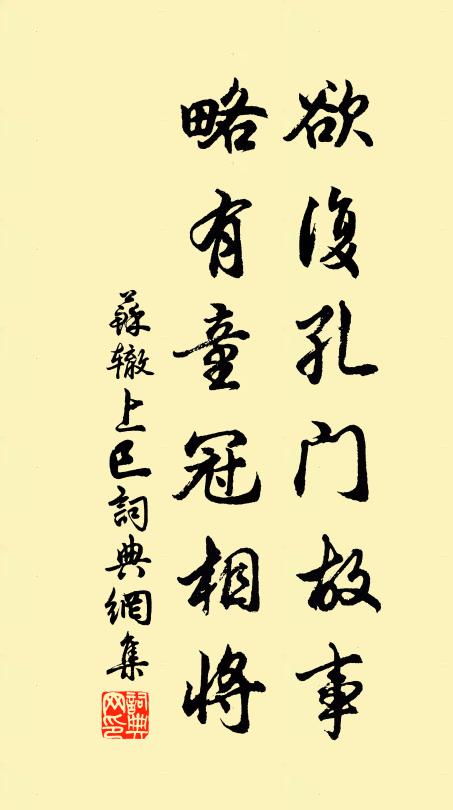 欲復孔门故事
略有童冠相將
蘇辙上巳詞典網集
詞典网印